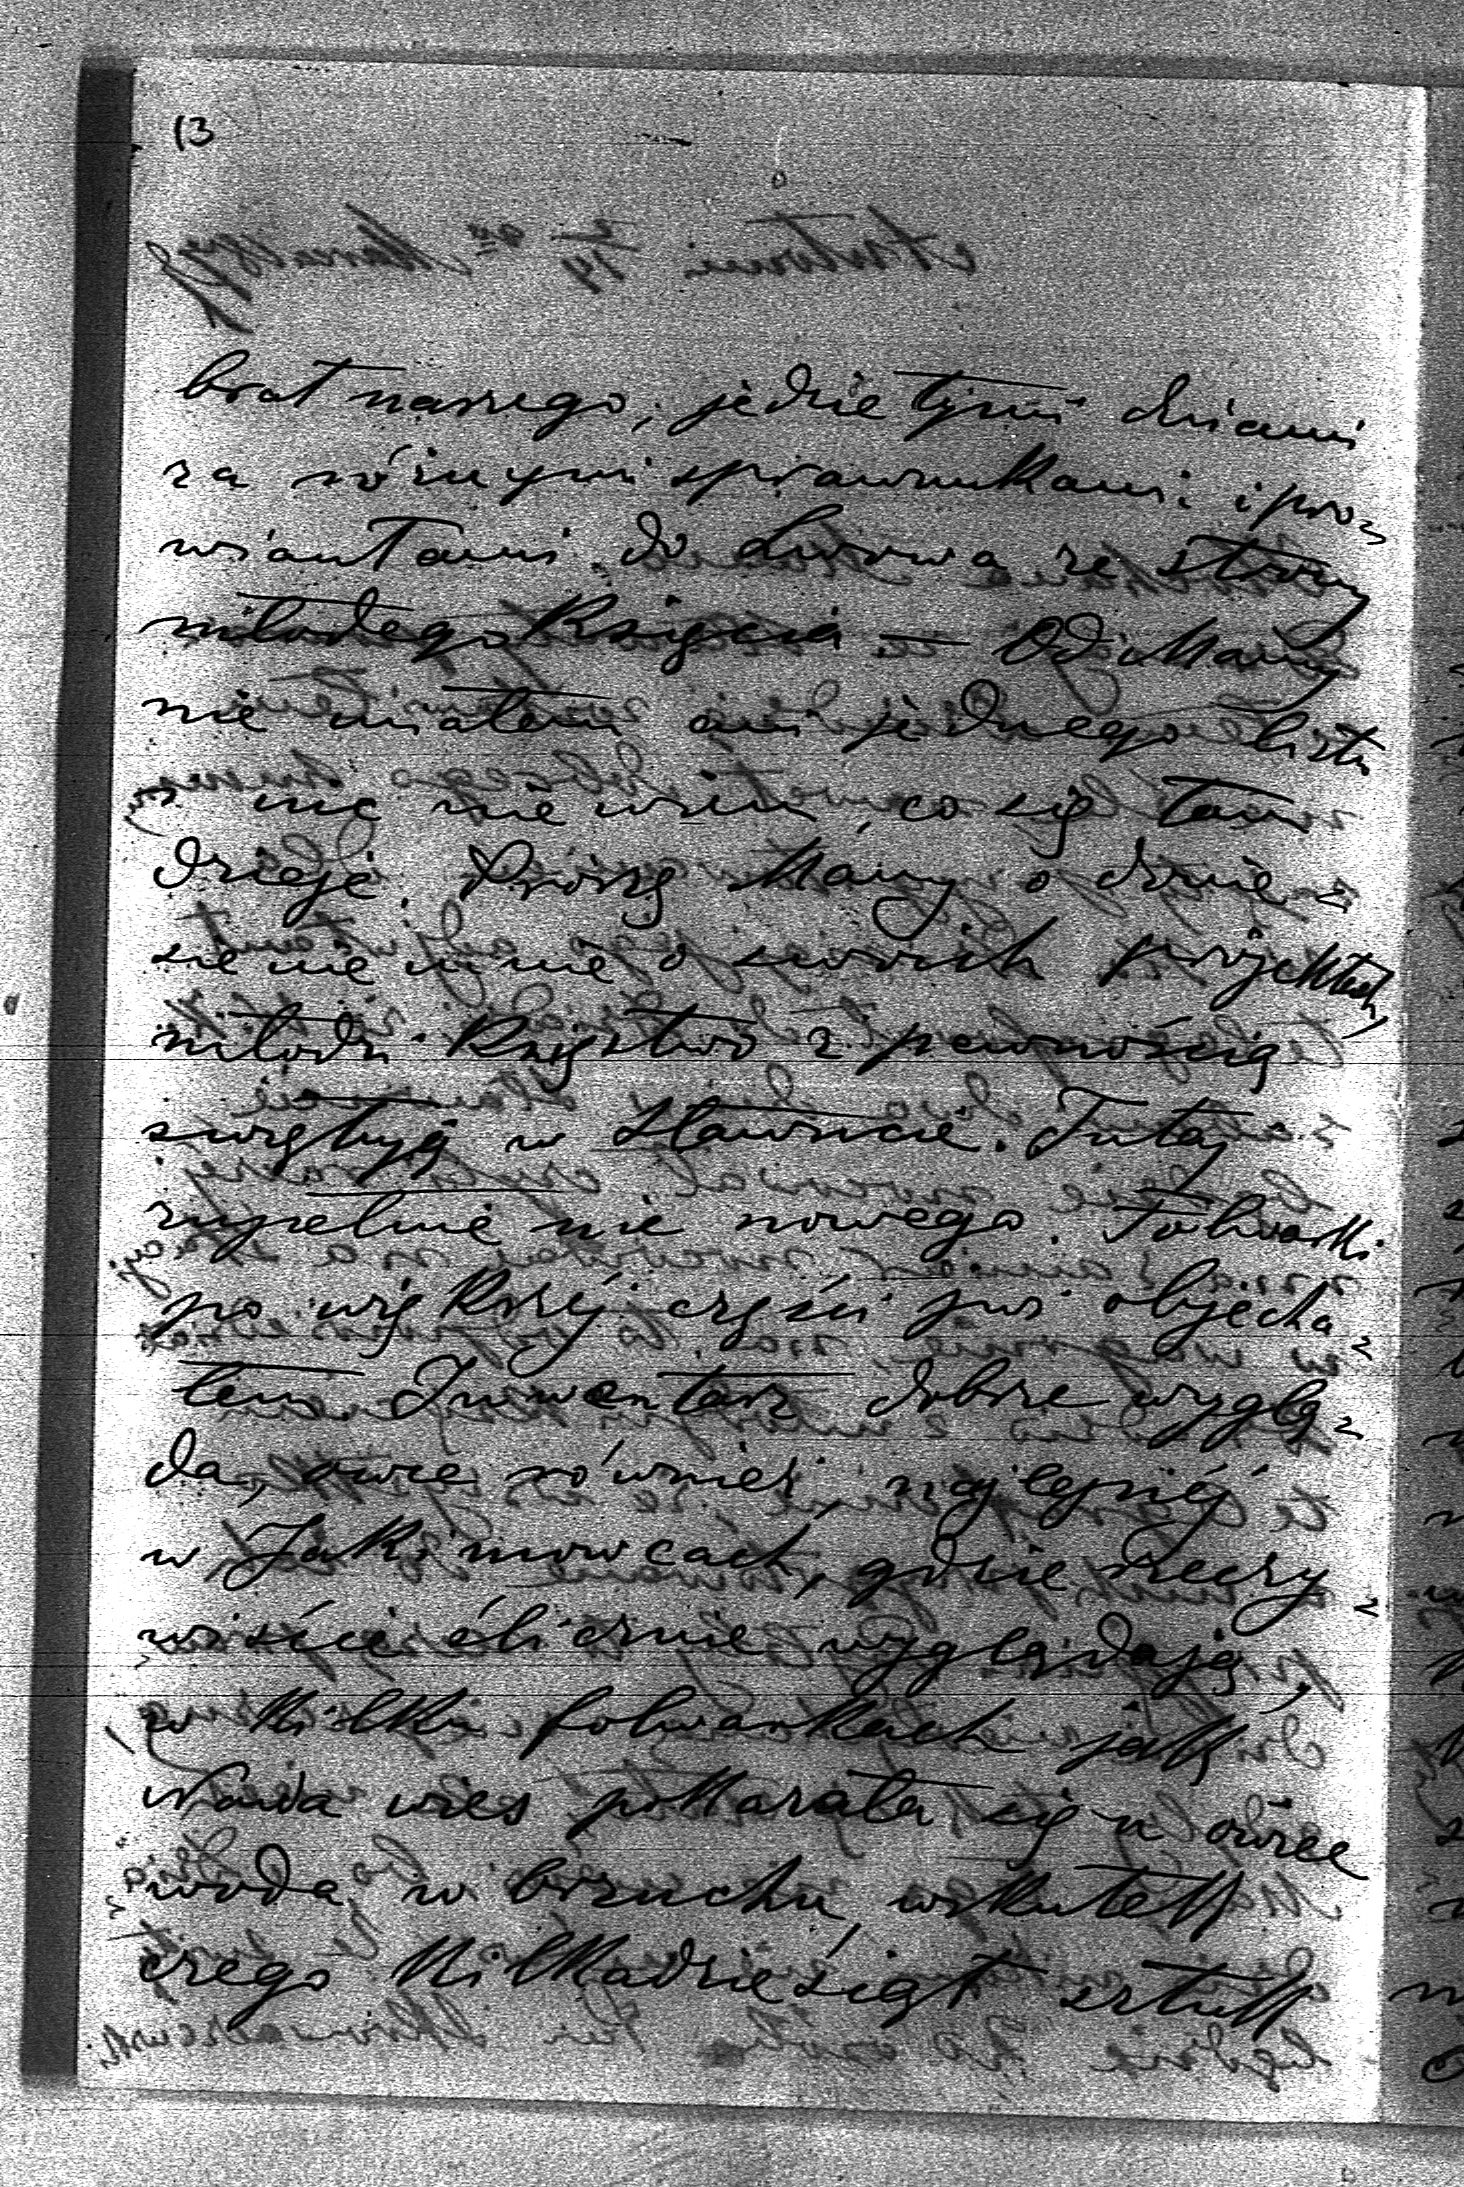 13
brat naszego, jedzie tymi dniami
za różnymi sprawunkami i pro=
wiantami do Lwowa ze strony
młodego Księcia — Od Mamy
nie miałem ani jednego listu
i nic nie wiem, co się tam
dzieje. Proszę Mamy o donie=
sienie mnie o swoich projektach
młodzi Księstwo z pewnością
w Sławucie. Tutaj
zupełnie nic nowego. Folwarki
po większej części już objecha=
łem Inwentarz dobrze wyglą=
da, owce również, najlepiéj
w Jakimowcach, gdzie rzeczy=
wiście ślicznie wyglądają,
w kilku folwarkach jak
wies pokazała się u owiec
woda w brzuchu, wskutek
czego kilkadziesiąt sztuk